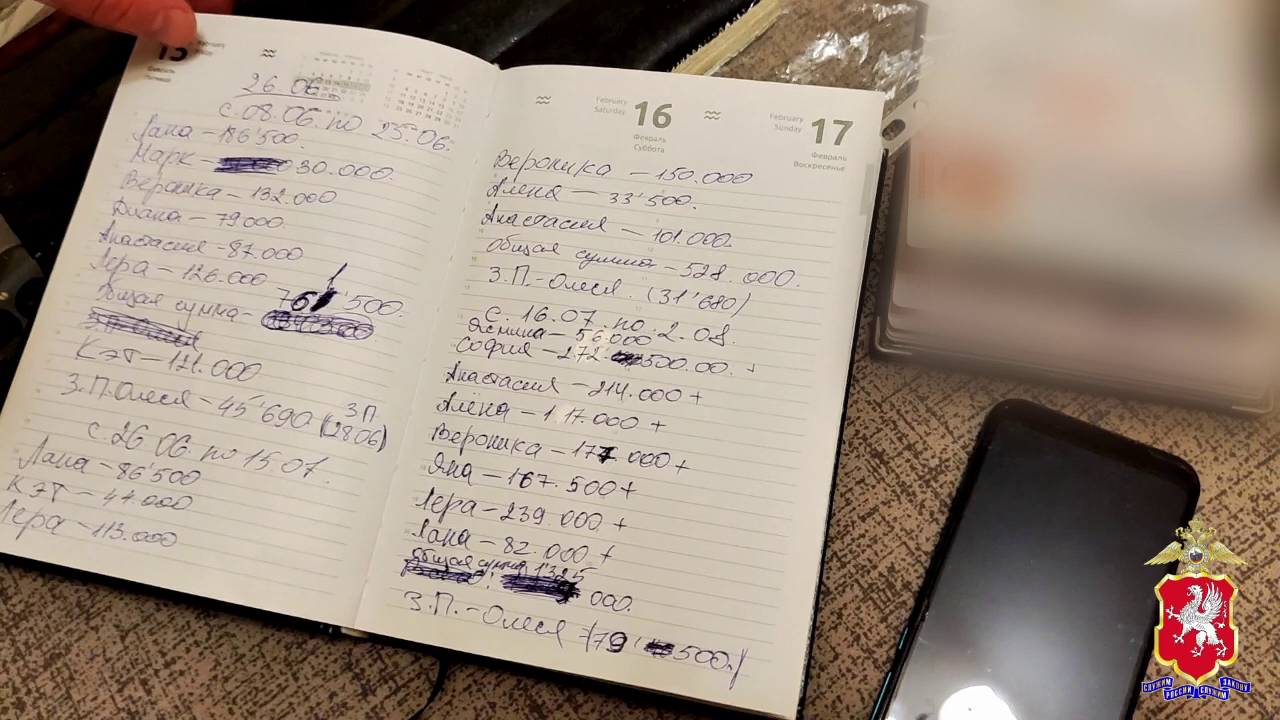 15 February
Friday
Февраль
Пятница
26.06.
с.08.06. по 25.06.
Лана – 186'500.
Марк – 30.000.
Вероника – 132.000
Диана – 79000.
Анастасия – 87.000
Лера – 126.000
Общая сумма – 761'500.
КЭТ – 121.000
З.П. Олеся – 45'690 (ЗП 28.06)
с.26.06. по 15.07.
Лана – 86'500
КЭТ – 44.000
Лера – 113.000
February
Saturday
16
Февраль
Суббота
February
Sunday
17
Февраль
Воскресенье
Вероника – 150.000
Алена – 33'500.
Анастасия – 101.000.
Общая сумма – 528.000.
З.П. – Олеся. (31'680)
с. 16.07. по 2.08.
– 56.000
София – 272 500.00. +
Анастасия – 214.000 +
Алёна – 117.000 +
Вероника – 177.000 +
Яна – 167.500 +
Лера – 239.000 +
Лана – 82.000 +
Общая сумма 1'325
000.
З.П. – Олеся (79' 500.)
СЛУЖИМ РОССИИ СЛУЖИМ ЗАКОНУ